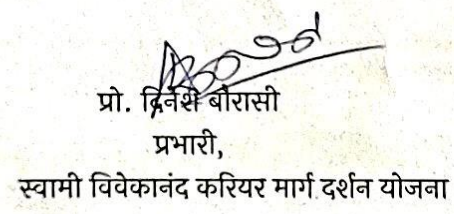 प्रो. दिनेश बौरासी
प्रभारी,
स्वामी विवेकानंद करियर मार्ग दर्शन योजना